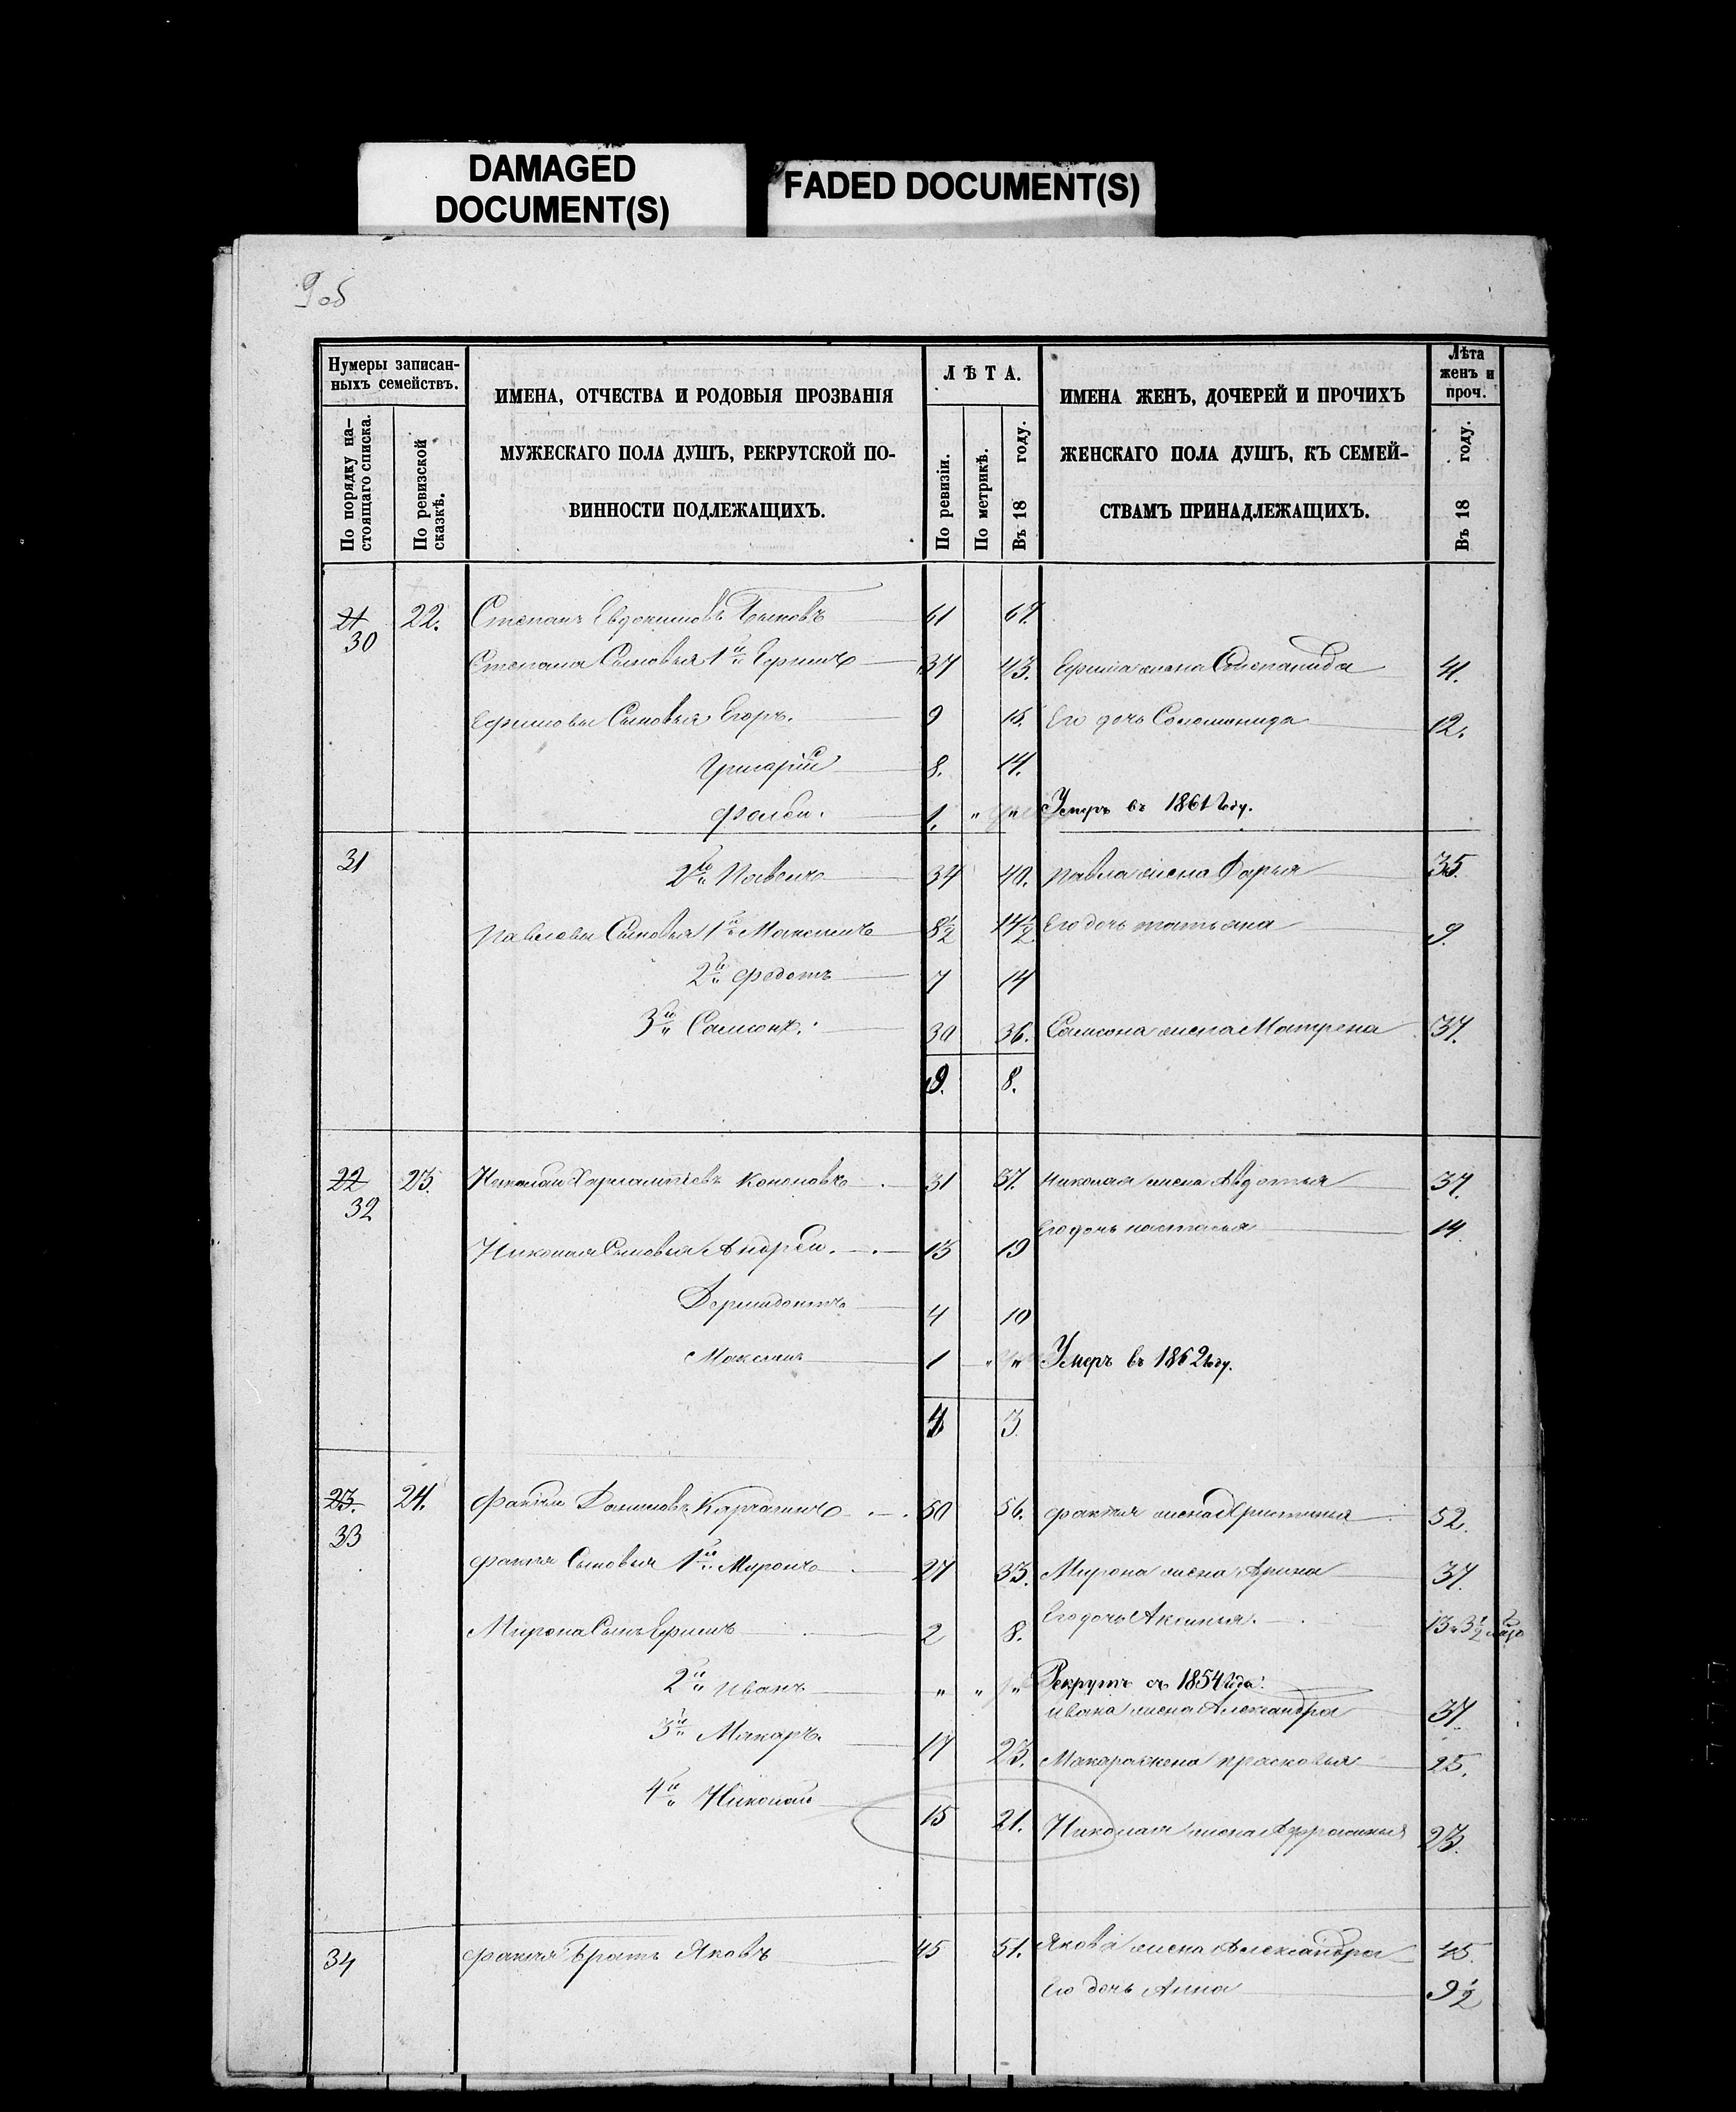 DAMAGED
DOCUMENT(S)
FADED DOCUMENT(S)
9 об
Нумеры записан-
ныхъ семействъ.
По порядку на-
стоящаго списка.
По ревизской
сказкѣ.
ИМЕНА, ОТЧЕСТВА И РОДОВЫЯ ПРОЗВАНІЯ
МУЖЕСКАГО ПОЛА ДУШЪ, РЕКРУТСКОЙ ПО-
ВИННОСТИ ПОДЛЕЖАЩИХЪ.
ЛѢТА.
По ревизіи.
По метрикѣ.
Въ 18 году.
ИМЕНА ЖЕНЪ, ДОЧЕРЕЙ И ПРОЧИХЪ
ЖЕНСКАГО ПОЛА ДУШЪ, КЪ СЕМЕЙ-
СТВАМЪ ПРИНАДЛЕЖАЩИХЪ.
Лѣта
женъ и
проч.
Въ 18 году.
21 22. Степанъ Евдокимовъ 61 67.
30
Степана Сыновья 1й Ефимъ 37 43. Ефима жена Степанида 41.
Ефимовы Сыновья Егоръ. 9 15. Его дочь Соломонида 12.
Григорій 8. 14.
1. " " Умеръ въ 1861 году.
31 2й Павелъ 34 40. Павла жена Дарья 35.
Павловы Сыновья 1й Максимъ 8½ 14½ Его дочь татьяна 9.
2й Федотъ 7 14
3й Самсонъ. 30 36. Самсона жена Матрена 37.
9. 8.
22 23. Николай Харлампіевъ Кононовъ 31 37. Николая жена Авдотья 37.
32
Его дочь настасья 14.
Николая Сыновья Андрей. 13 19
4 10
Максимъ 1 " " Умеръ въ 1862 году.
4 3
23. 24. Фатѣй 50 56. фатѣя жена Христинья 52.
33
фатѣя Сыновья 1й Миронъ 27 33. Мирона жена Арина 37.
Мирона Сынъ Ефимъ 2 8. Его дочь Аксинья. 13 и 3½
2й Иванъ " " " Рекрутъ съ 1854 года.
Ивана жена Александра 37
3й Макаръ. 17 23. Макара жена прасковья 25.
4й Николай 15 21. Николая жена Афросинья 23.
34 фатѣя Братъ Яковъ 45 51. Якова жена Александра 45.
Его дочь Анна 9½